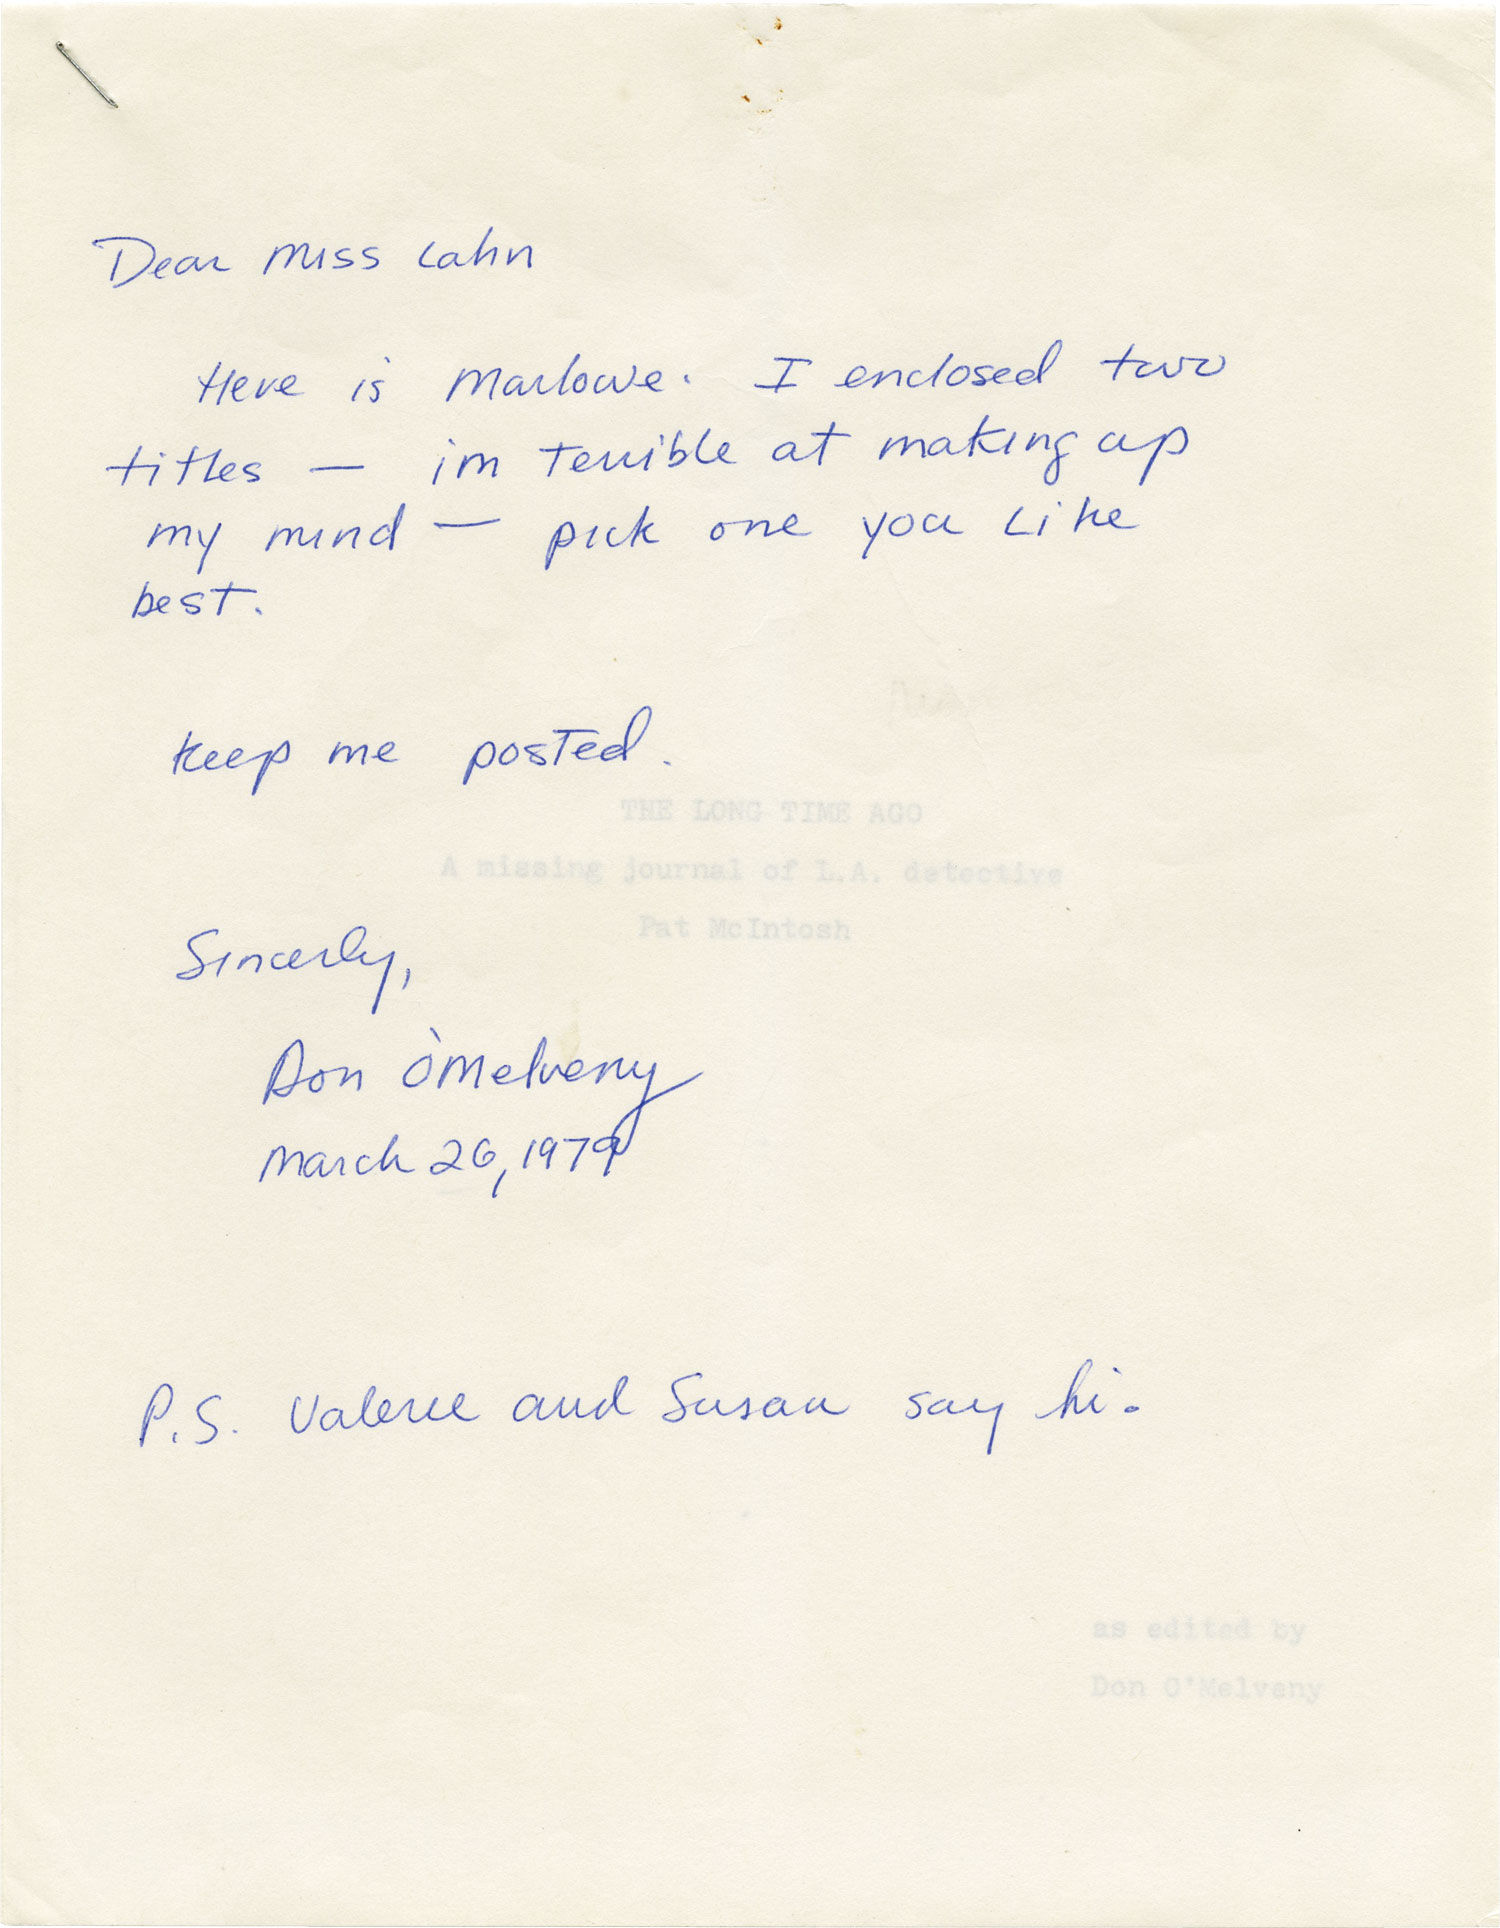 Dear Miss Lahn
Here is Marlowe. I enclosed two
titles — im terrible at making up
my mind — pick one you like
best.
Keep me posted.
THE LONG TIME AGO
A missing journal of L.A. detective
Pat McIntosh
Sincerly,
Don O'Melveny
March 26, 1979
P.S. Valerie and Susan say hi.
as edited by
Don O'Melveny